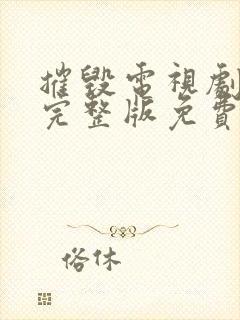 摧毀電視劇
完整版免費
俗休